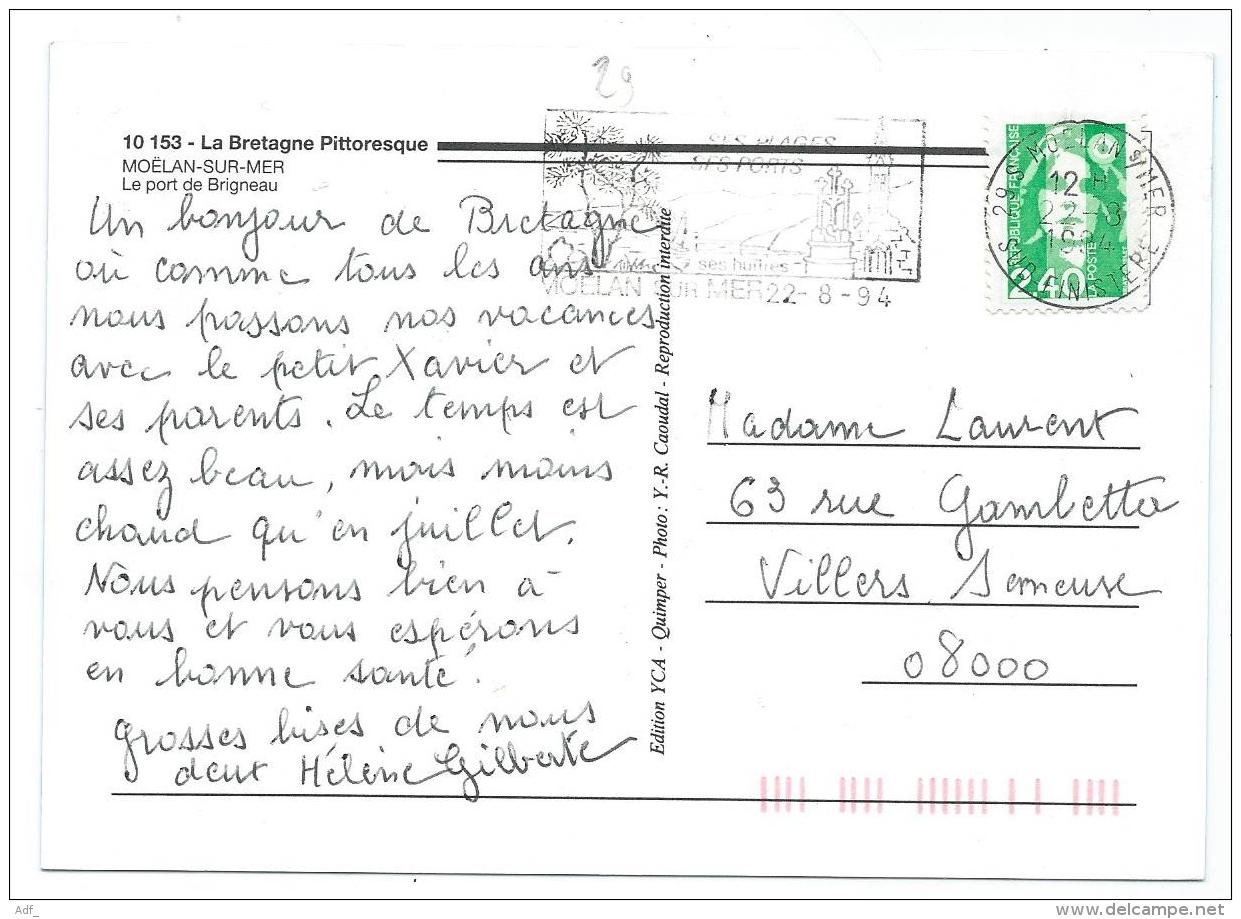 29
10 153 - La Bretagne Pittoresque
MOËLAN-SUR-MER
Le port de Brigneau
SES PLAGES
SES PORTS
ses huîtres
MOËLAN SUR MER 22-8-94
MOELAN S/MER
12 H
22-8
1994
29S FINISTERE
REPUBLIQUE FRANÇAISE
2,40
LA POSTE
Un bonjour de Bretagne
où comme tous les ans
nous passons nos vacances
avec le petit Xavier et
ses parents. Le temps est
assez beau, mais moins
chaud qu'en juillet.
Nous pensons bien à
vous et vous espérons
en bonne santé.
Grosses bises de nous
deux Hélène Gilberte
Edition YCA - Quimper - Photo : Y.-R. Caoudal - Reproduction interdite
Madame Laurent
63 rue Gambetta
Villers Semeuse
08000
Adf_
delcampe.net